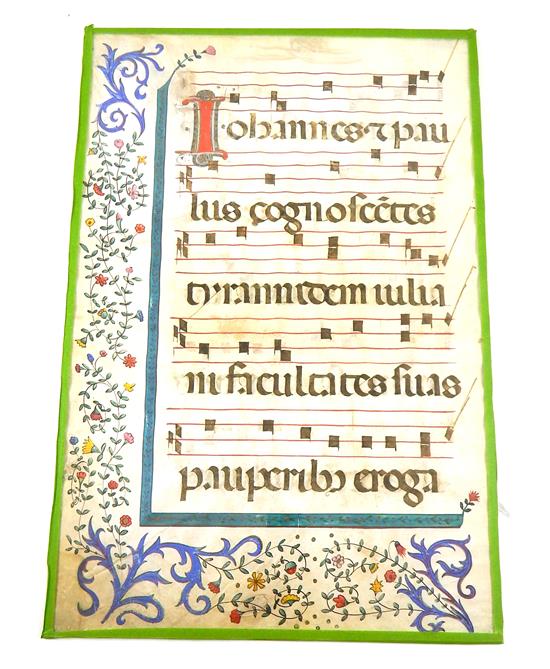 Iohannes ⁊ pau
lus cognoscẽtes
tyrannidem iulia
ni facultates suas
pauperibꝰ eroga